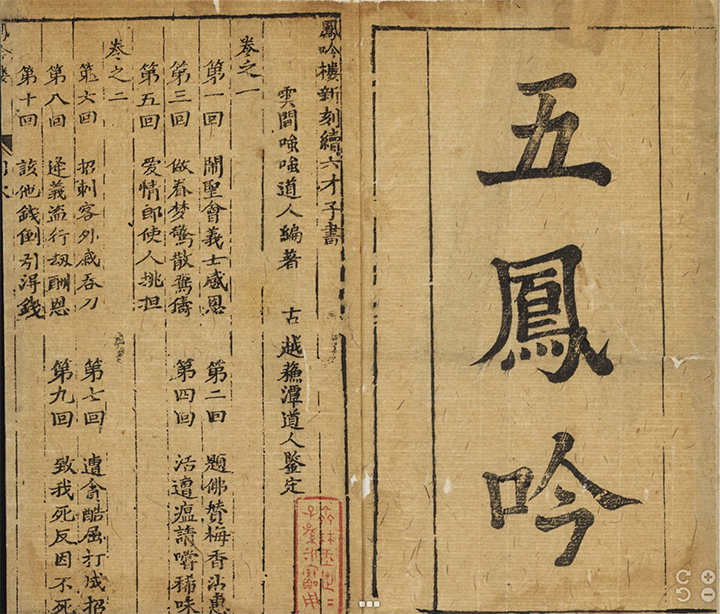 五鳳吟
鳳吟樓新刻續六才子書
雲間嗤嗤道人編著　古越蘓潭道人鑒定
卷之一
第一回　鬧聖會義士感恩　第二回　題佛贊梅香沾惠
第三回　做春梦驚散鴛儔　第四回　活遭瘟請嘗稀味
第五回　爱情郎使人挑担
卷之二
第六回　招刺客外戚吞刀　第七回　遭貪酷屈打成招
第八回　逢義盗行刼酬恩　第九回　致我死反因不死
第十回　該他錢倒引得錢